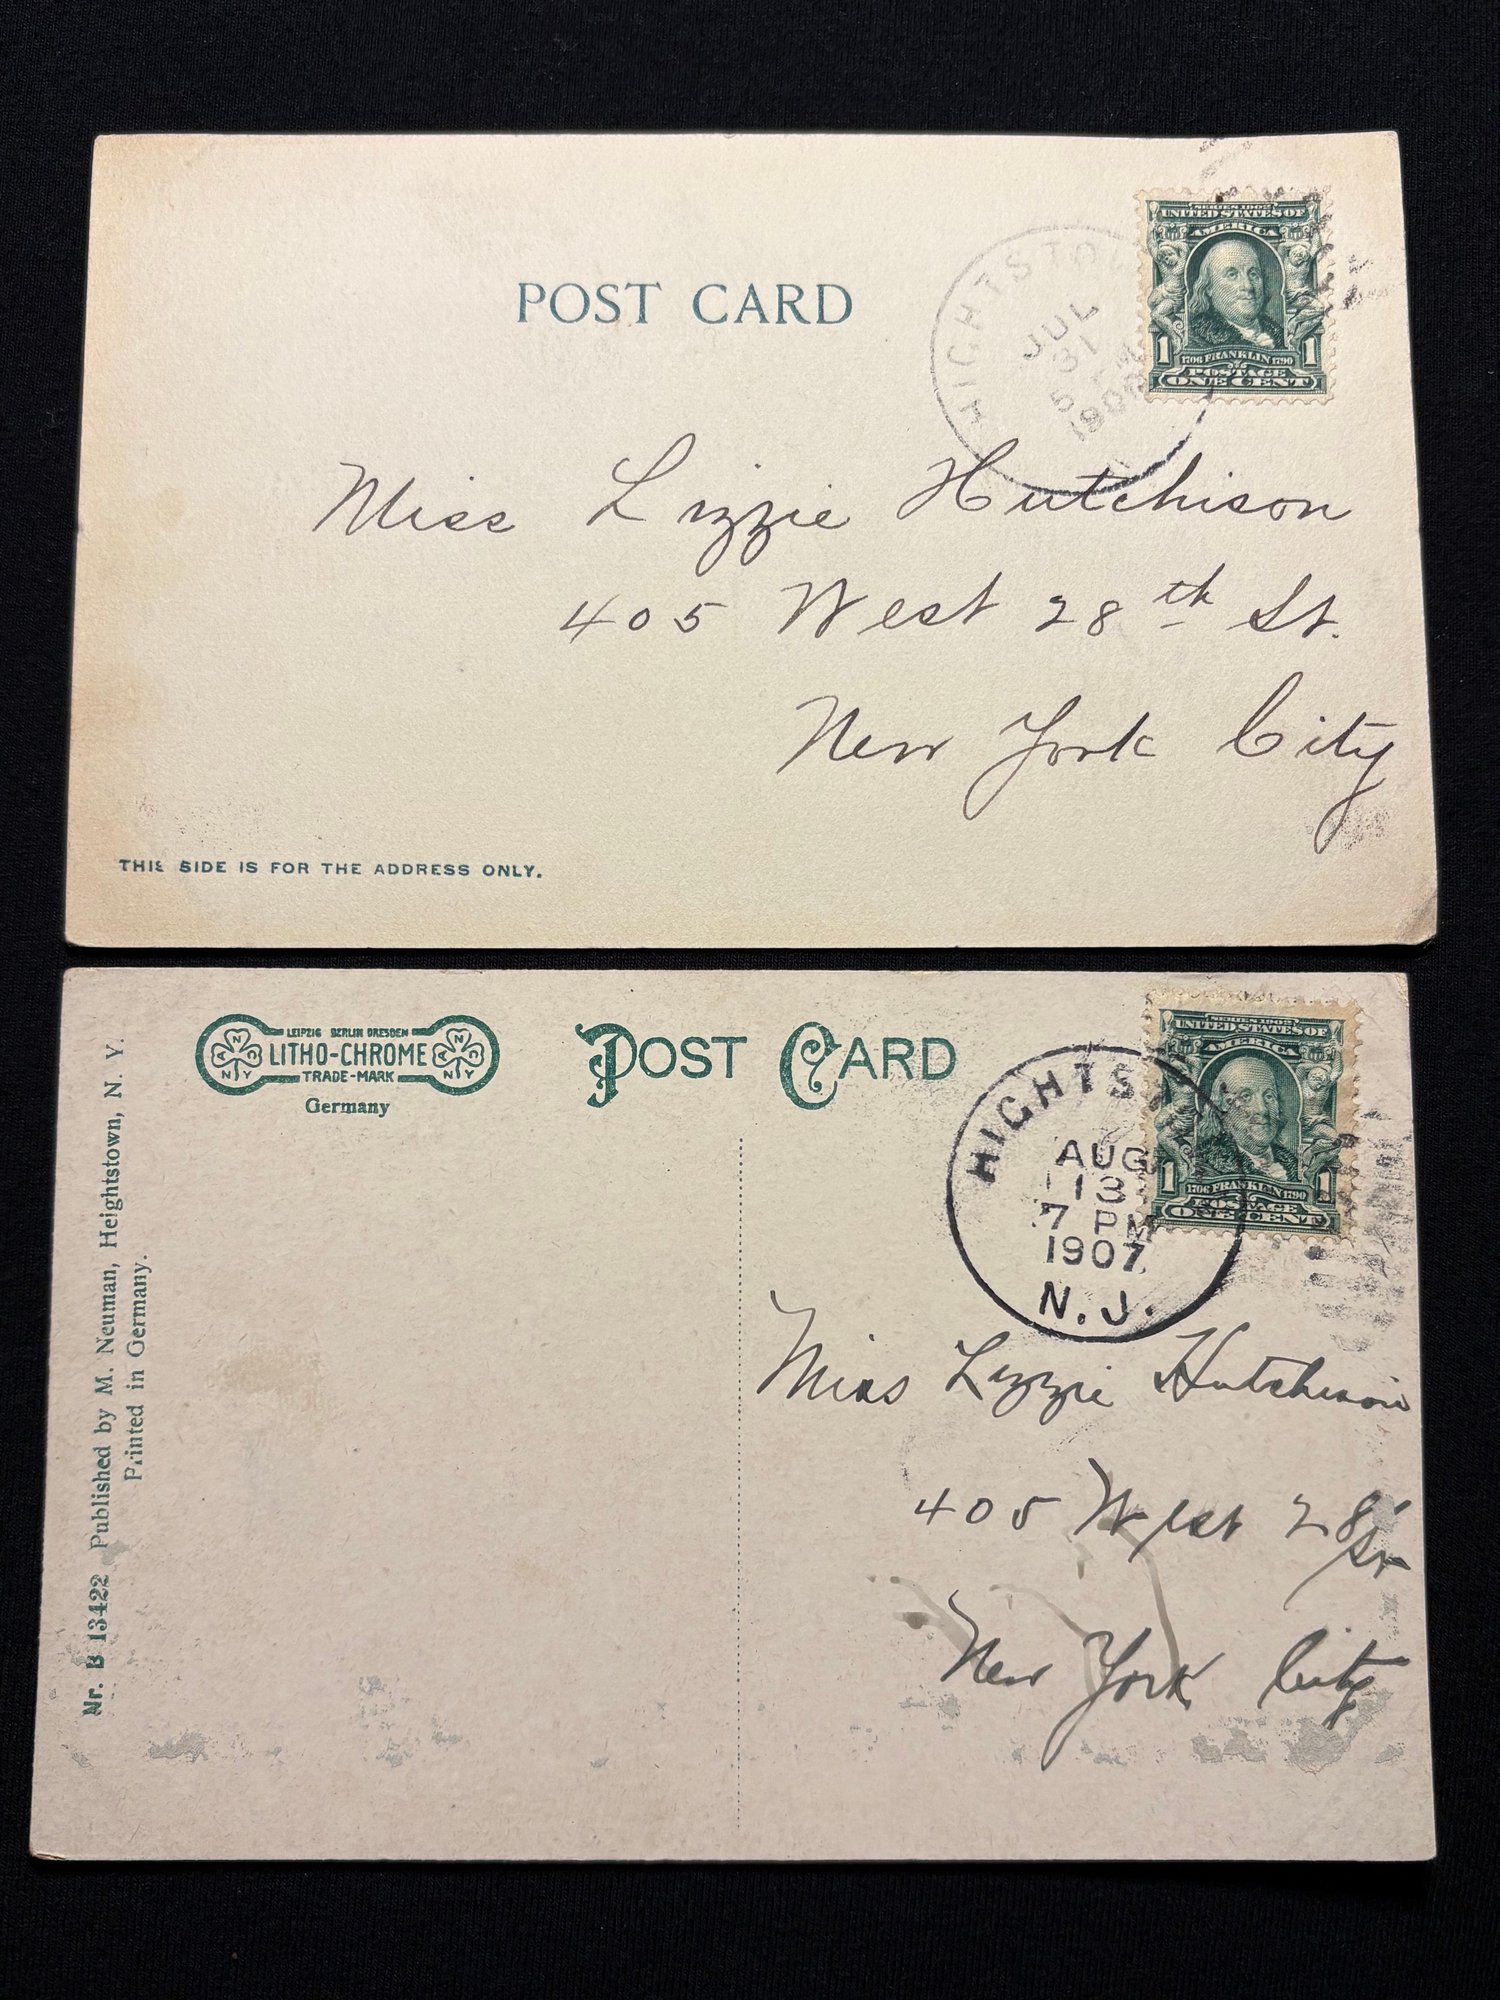 POST CARD
HIGHTSTOW
JUL
31
5
190
SERIES 1902
UNITED STATES OF
AMERICA
1 1
1706 FRANKLIN 1790
POSTAGE
ONE CENT
Miss Lizzie Hutchison
405 West 28th St.
New York City
THIS SIDE IS FOR THE ADDRESS ONLY.
LEIPZIG BERLIN DRESDEN
LITHO-CHROME
TRADE-MARK
A N D N Y
A N D N Y
Germany
POST CARD
HIGHTST
AUG
13
7 PM
1907
N.J.
SERIES 1902
UNITED STATES OF
AMERICA
1 1
1706 FRANKLIN 1790
POSTAGE
ONE CENT
Miss Lizzie Hutchison
405 West 28 St
New York City
Nr. B 13422 Published by M. Neuman, Heightstown, N. Y.
Printed in Germany.